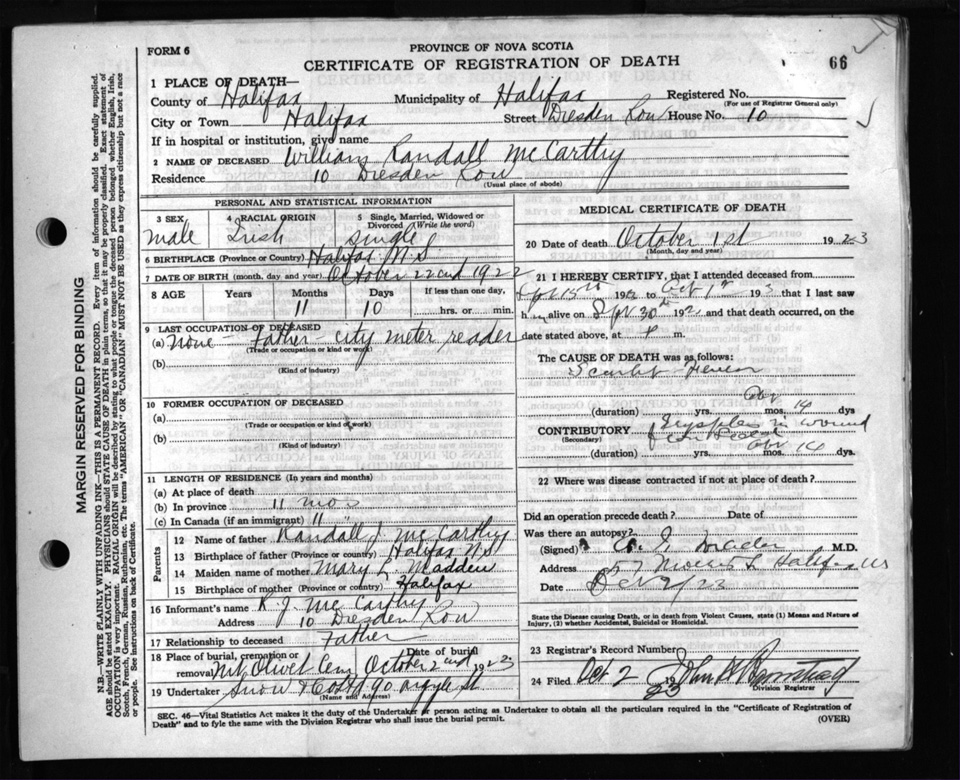 FORM 6
PROVINCE OF NOVA SCOTIA
CERTIFICATE OF REGISTRATION OF DEATH
66
1 PLACE OF DEATH—
County of Halifax Municipality of Halifax Registered No.
(For use of Registrar General only)
City or Town Halifax Street Dresden Row House No. 10
If in hospital or institution, give name
2 NAME OF DECEASED William Randall McCarthy
Residence 10 Dresden Row
(Usual place of abode)
PERSONAL AND STATISTICAL INFORMATION
3 SEX 4 RACIAL ORIGIN 5 Single, Married, Widowed or Divorced (Write the word)
Male Irish Single
6 BIRTHPLACE (Province or Country) Halifax N.S
7 DATE OF BIRTH (month, day and year) October 22nd 1922
8 AGE Years Months Days If less than one day,
11 10 hrs. or min.
9 LAST OCCUPATION OF DECEASED
(a) None - Father - city meter reader
(Trade or occupation or kind of work)
(b)
(Kind of industry)
10 FORMER OCCUPATION OF DECEASED
(a)
(Trade or occupation or kind of work)
(b)
(Kind of industry)
11 LENGTH OF RESIDENCE (In years and months)
(a) At place of death
(b) In province 11 mos
(c) In Canada (if an immigrant) 11 "
Parents
12 Name of father Randall J. McCarthy
13 Birthplace of father (Province or country) Halifax N.S
14 Maiden name of mother Mary L. Madden
15 Birthplace of mother (Province or country) Halifax
16 Informant's name R J McCarthy
Address 10 Dresden Row
17 Relationship to deceased Father
18 Place of burial, cremation or removal Date of burial
Mt Olivet Cem October 2nd 1923
19 Undertaker Snow & Co Ltd 90 Argyle St
(Name and Address)
MEDICAL CERTIFICATE OF DEATH
20 Date of death October 1st 1923
(Month, day and year)
21 I HEREBY CERTIFY, that I attended deceased from
15th 192 to Oct 1st 19 that I last saw
h alive on Sept 30th 192 and that death occurred, on the
date stated above, at m.
The CAUSE OF DEATH was as follows:
Scarlet Fever
(duration) yrs. mos. 14 dys
CONTRIBUTORY Erysipelas in wound
(Secondary)
(duration) yrs. mos. 14 dys.
22 Where was disease contracted if not at place of death?
Did an operation precede death? Date of
Was there an autopsy?
(Signed) M.D.
Address 57 Halifax NS
Date Oct 2/23
State the Disease causing Death, or in death from Violent Causes, state (1) Means and Nature of Injury, (2) whether Accidental, Suicidal or Homicidal.
23 Registrar's Record Number
24 Filed Oct 2 1923 John
Division Registrar
SEC. 46—Vital Statistics Act makes it the duty of the Undertaker or person acting as Undertaker to obtain all the particulars required in the "Certificate of Registration of
Death" and to fyle the same with the Division Registrar who shall issue the burial permit. (OVER)
MARGIN RESERVED FOR BINDING
N.B.—WRITE PLAINLY WITH UNFADING INK—THIS IS A PERMANENT RECORD. Every item of information should be carefully supplied.
AGE should be stated EXACTLY. PHYSICIANS should STATE CAUSE OF DEATH in plain terms, so that it may be properly classified. Exact statement of
OCCUPATION is very important. RACIAL ORIGIN will be described by stating to what people or tongue the deceased person belonged whether English, Irish,
Scotch, French, German, Russian, Ruthenian, etc. The terms "AMERICAN" OR "CANADIAN" MUST NOT BE USED as they express citizenship but not a race
or people. See instructions on back of Certificate.